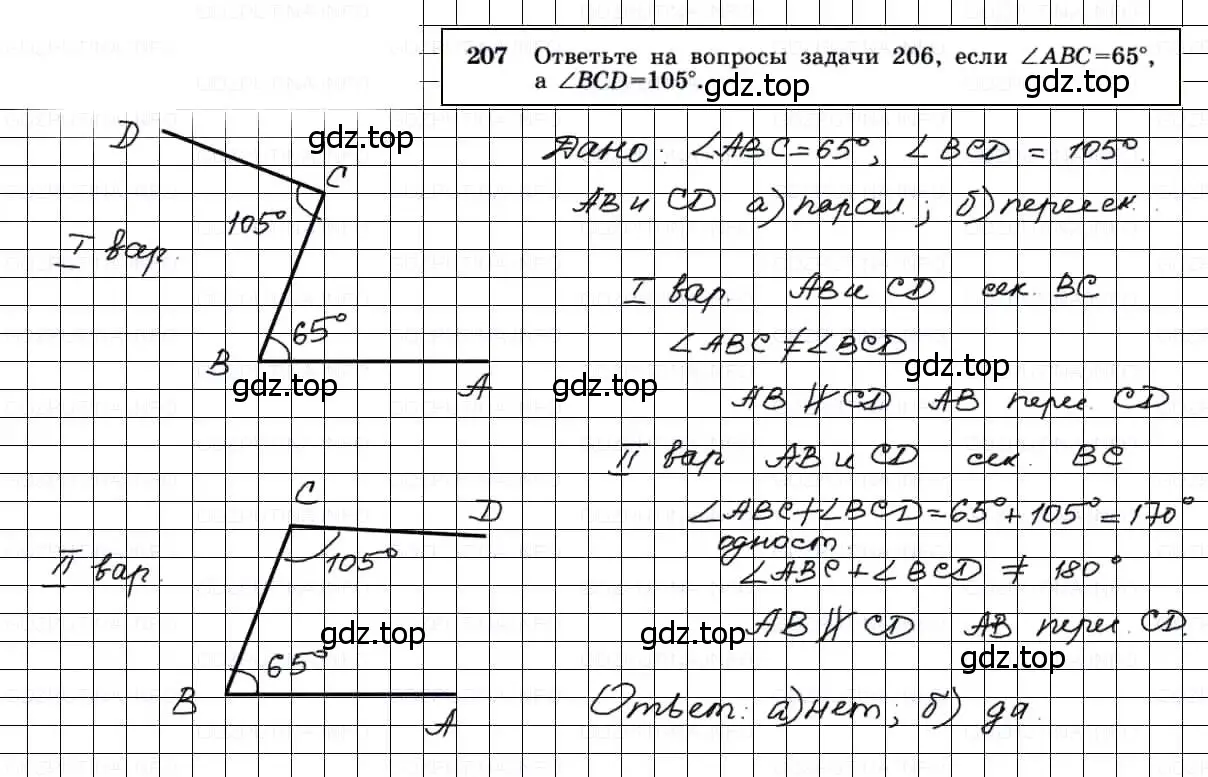 207 Ответьте на вопросы задачи 206, если ∠ABC=65°,
а ∠BCD=105°.
gdz.top
gdz.top
gdz.top
D
C
105°
I вар.
65°
B
A
gdz.top
Дано: ∠ABC=65°, ∠BCD = 105°.
AB и CD а) парал.; б) пересек.
I вар. AB и CD сек. BC
∠ABC ≠ ∠BCD
gdz.top
gdz.top
AB ∦ CD AB перес. CD
II вар AB и CD сек. BC
∠ABC+∠BCD=65°+105°=170°
одност.
∠ABC+∠BCD ≠ 180°
gdz.top
AB ∦ CD AB перес. CD.
gdz.top
Ответ: а) нет; б) да.
C
D
II вар.
105°
gdz.top
65°
B
A